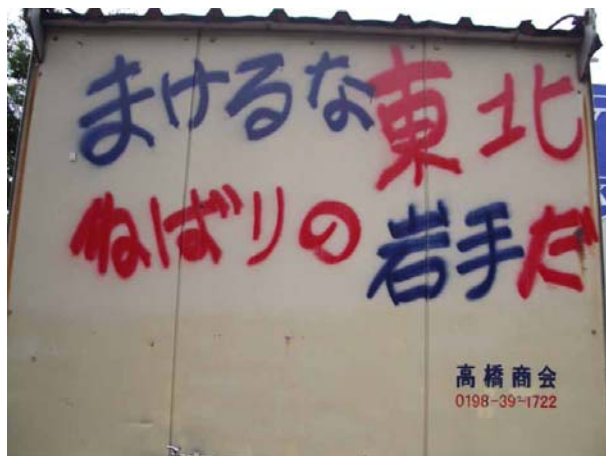 まけるな東北
ねばりの岩手だ
高橋商会
0198-39-1722